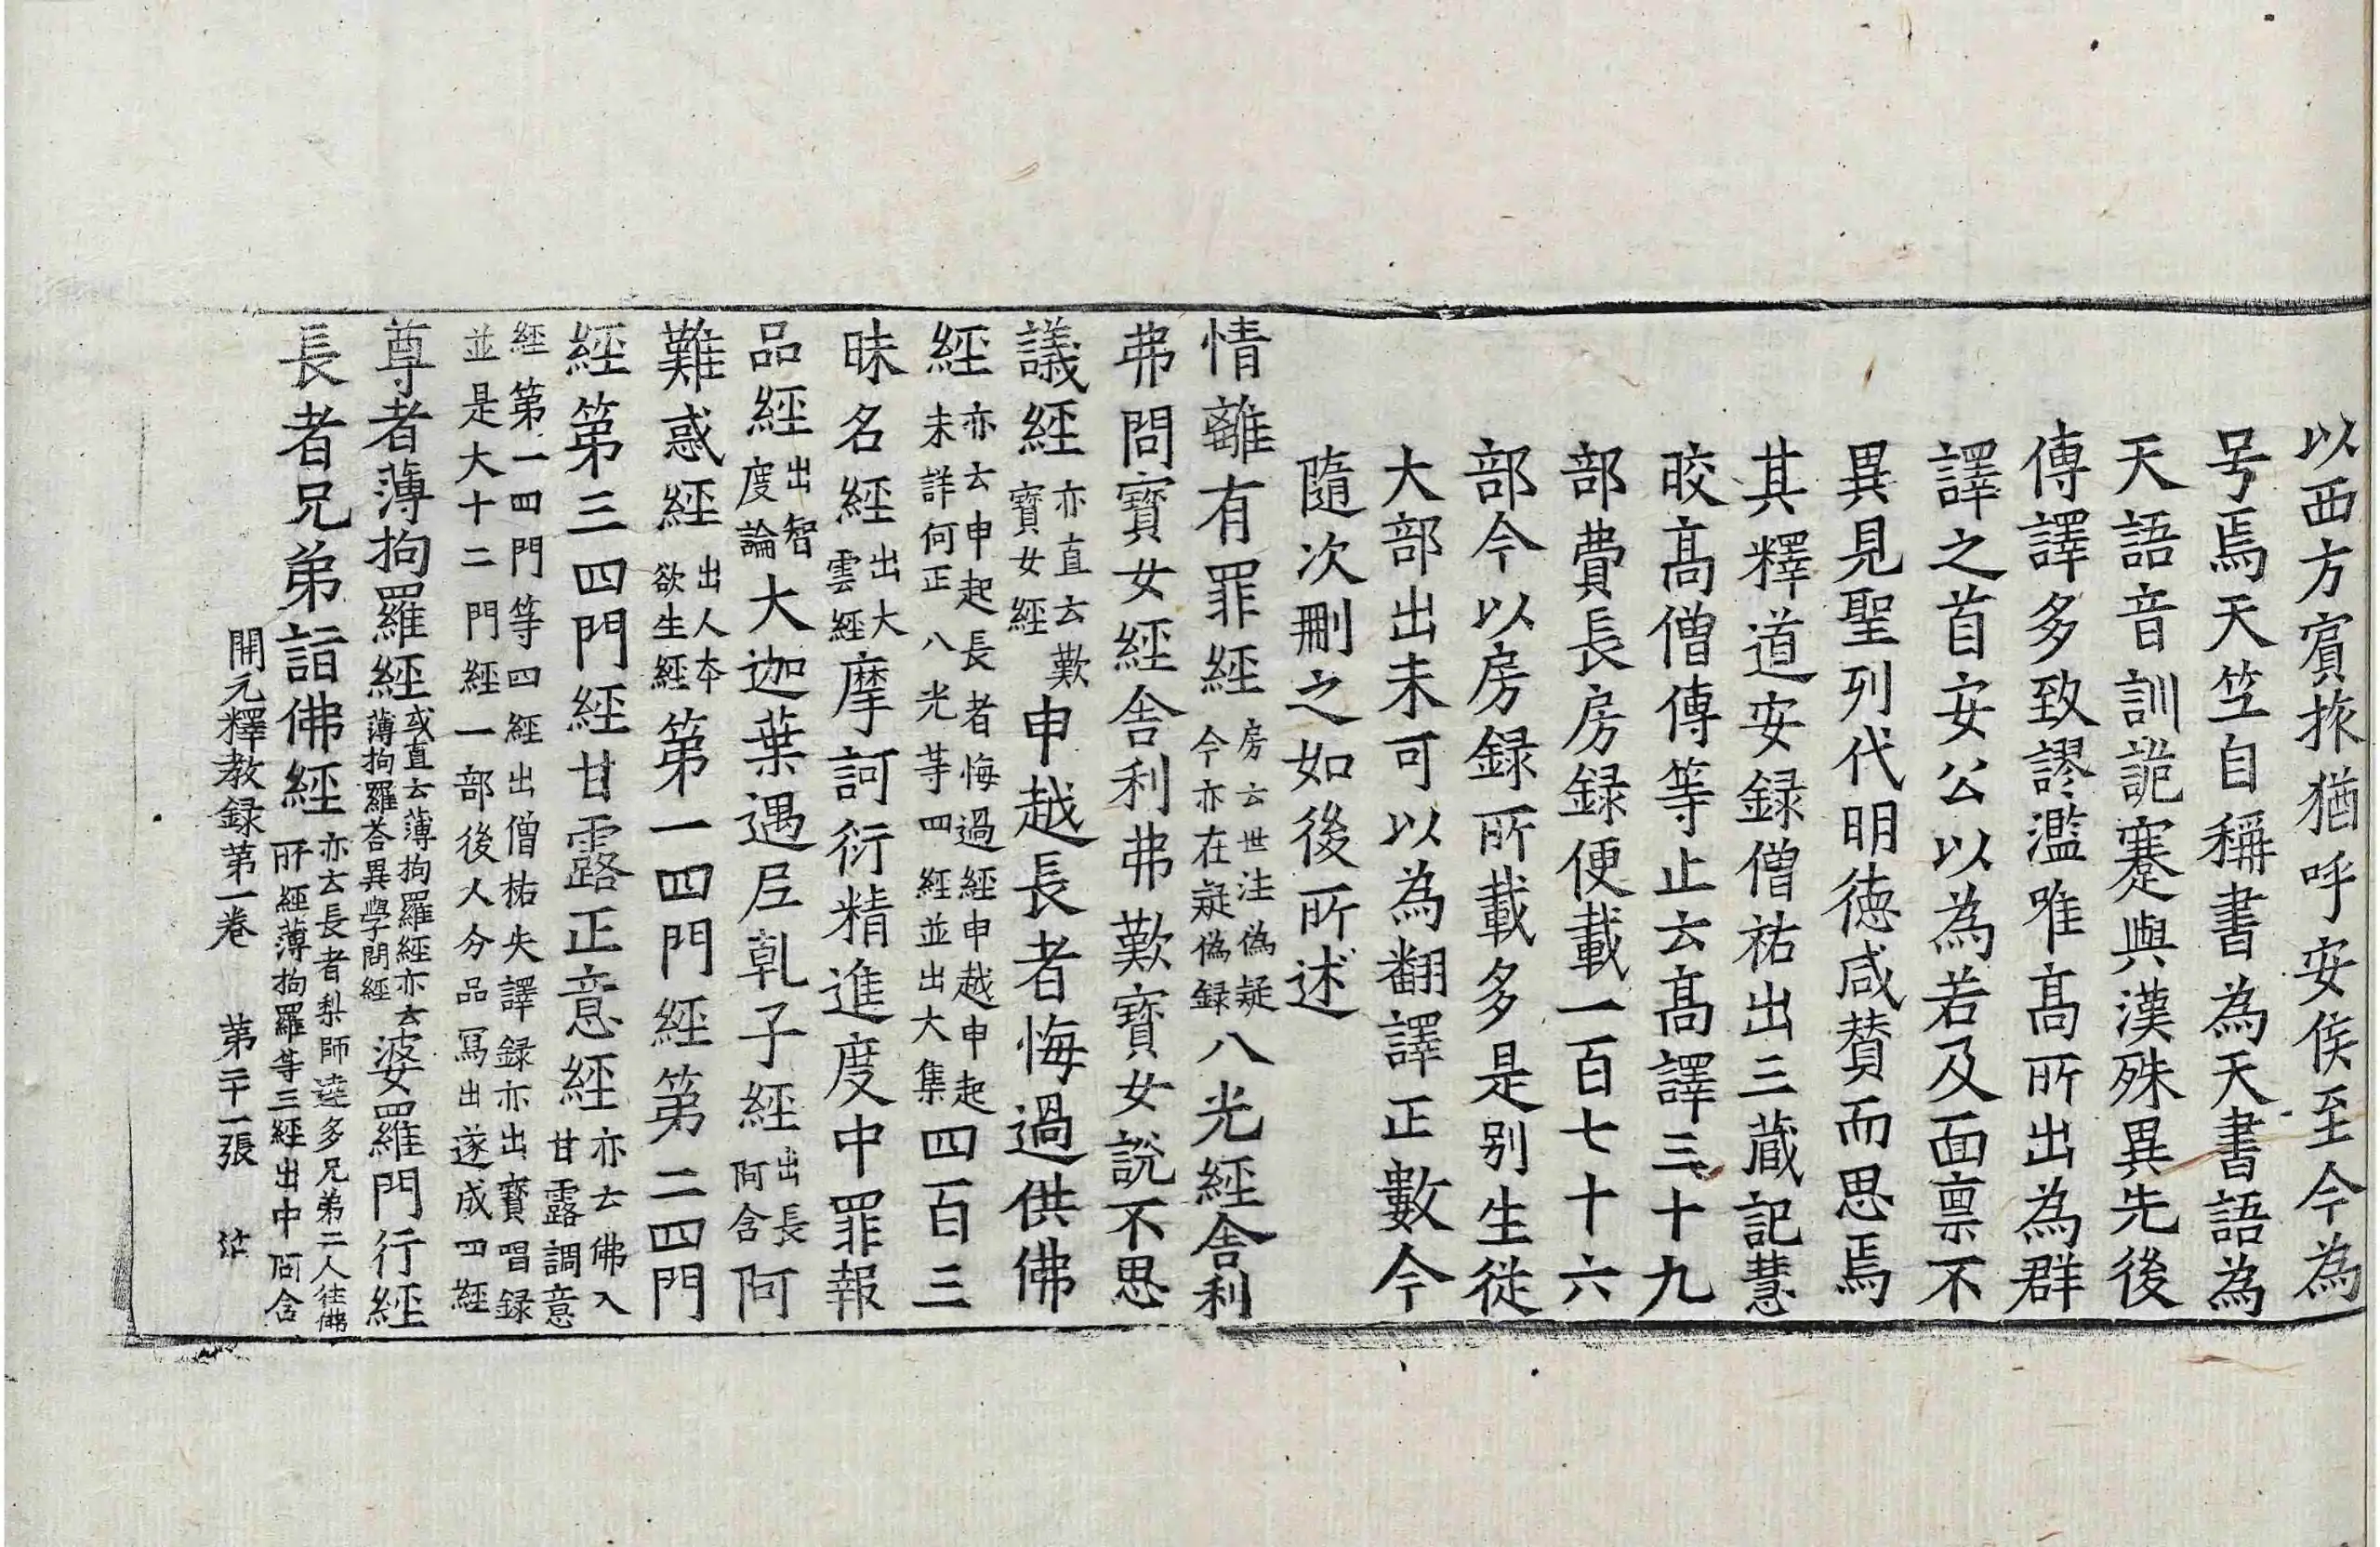 以西方賔旅猶呼安侯至今為
号焉天竺自稱書為天書語為
天語音訓詭蹇與漢殊異先後
傳譯多致謬濫唯髙所出為群
譯之首安公以為若及面禀不
異見聖列代明德咸賛而思焉
其釋道安録僧祐出三蔵記慧
晈髙僧傳等止云髙譯三十九
部費長房録便載一百七十六
部今以房録所載多是别生從
大部出未可以為翻譯正數今
隨次刪之如後所述
情離有罪經房云世注偽疑今亦在疑偽録八光經舍利
弗問寶女經舍利弗歎寶女說不思
議經亦直云歎寶女經申越長者悔過供佛
經亦云申起長者悔過經申越申起未詳何正八光等四經並出大集四百三
昧名經出大雲經摩訶衍精進度中罪報
品經出智度論大迦葉遇尼乹子經出長阿含阿
難惑經出人本欲生經第一四門經第二四門
經第三四門經甘露正意經亦云佛入甘露調意
經第一四門等四經出僧祐失譯録亦出寶唱録並是大十二門經一部後人分品寫出遂成四經
尊者薄拘羅經或直云薄拘羅經亦云薄拘羅荅異學問經婆羅門行經
長者兄弟詣佛經亦云長者梨師達多兄弟二人往佛所經薄拘羅等三經出中阿含
開元釋教録第一卷　第二十一張